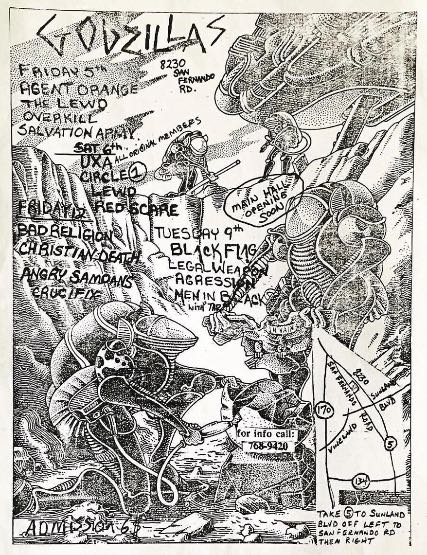 GODZILLAS
8230
SAN
FERNANDO
RD.
FRIDAY 5th
AGENT ORANGE
THE LEWD
OVERKILL
SALVATION ARMY
SAT 6th
UXA ALL ORIGINAL MEMBERS
CIRCLE 1
LEWD
RED SCARE
FRIDAY 12
BAD RELIGION
CHRISTIAN DEATH
ANGRY SAMOANS
CRUCIFIX
MAIN HALL
OPENING
SOON
TUESDAY 9th
BLACK FLAG
LEGAL WEAPON
AGRESSION
MEN IN BLACK
for info call:
768-9420
8230
SAN FERNANDO ROAD
SUNLAND
BLVD
VINELAND
170
5
134
TAKE 5 TO SUNLAND
BLVD OFF LEFT TO
SAN FERNANDO RD
THEN RIGHT
ADMISSION 6$